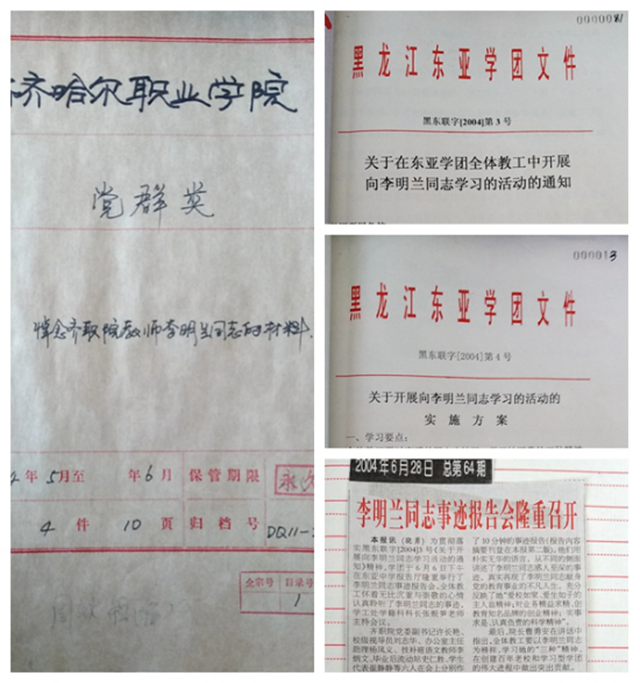 齐哈尔职业学院
党群类
悼念齐职院教师李明兰同志的材料
年5月至 年6月 保管期限 永久
4 件 10 页 归档号 DQ11-
全宗号 目录号
1
0000081
黑龙江东亚学团文件
黑东联字[2004]第3号
关于在东亚学团全体教工中开展
向李明兰同志学习的活动的通知
0000013
黑龙江东亚学团文件
黑东联字[2004]第4号
关于开展向李明兰同志学习的活动的
实施方案
一、学习要点:
2004年6月28日 总第64期
李明兰同志事迹报告会隆重召开
本报讯 为贯彻落
实黑东联字[2004]3号《关于开
展向李明兰同志学习的活动的通
知》精神,学团于6月8日下午
在东亚中学报告厅隆重举行了
李明兰同志事迹报告会。全体教
工怀着无比沉重与崇敬的心情
认真聆听了李明兰同志的事迹。
主持会议。
齐职院党委副书记许长艳、
了10分钟的事迹报告(报告内容
摘要刊登在本报第二版)。他们用
朴实无华的语言,从不同的侧面
讲述了李明兰同志感人至深的事
迹,真实再现了李明兰同志献身党
的教育事业的不凡人生,充分
反映了她“爱校如家、爱生如子的
主人翁精神;对业务精益求精、创
教育知名品牌的创业精神;实事
求是、认真负责的科学精神”。
最后,院长曹勇安在讲话中
指出,全体教工要以李明兰同志
为榜样,学习她的“三种”精神,
在创建百年老校和学习型学团
的伟大进程中做出突出贡献。